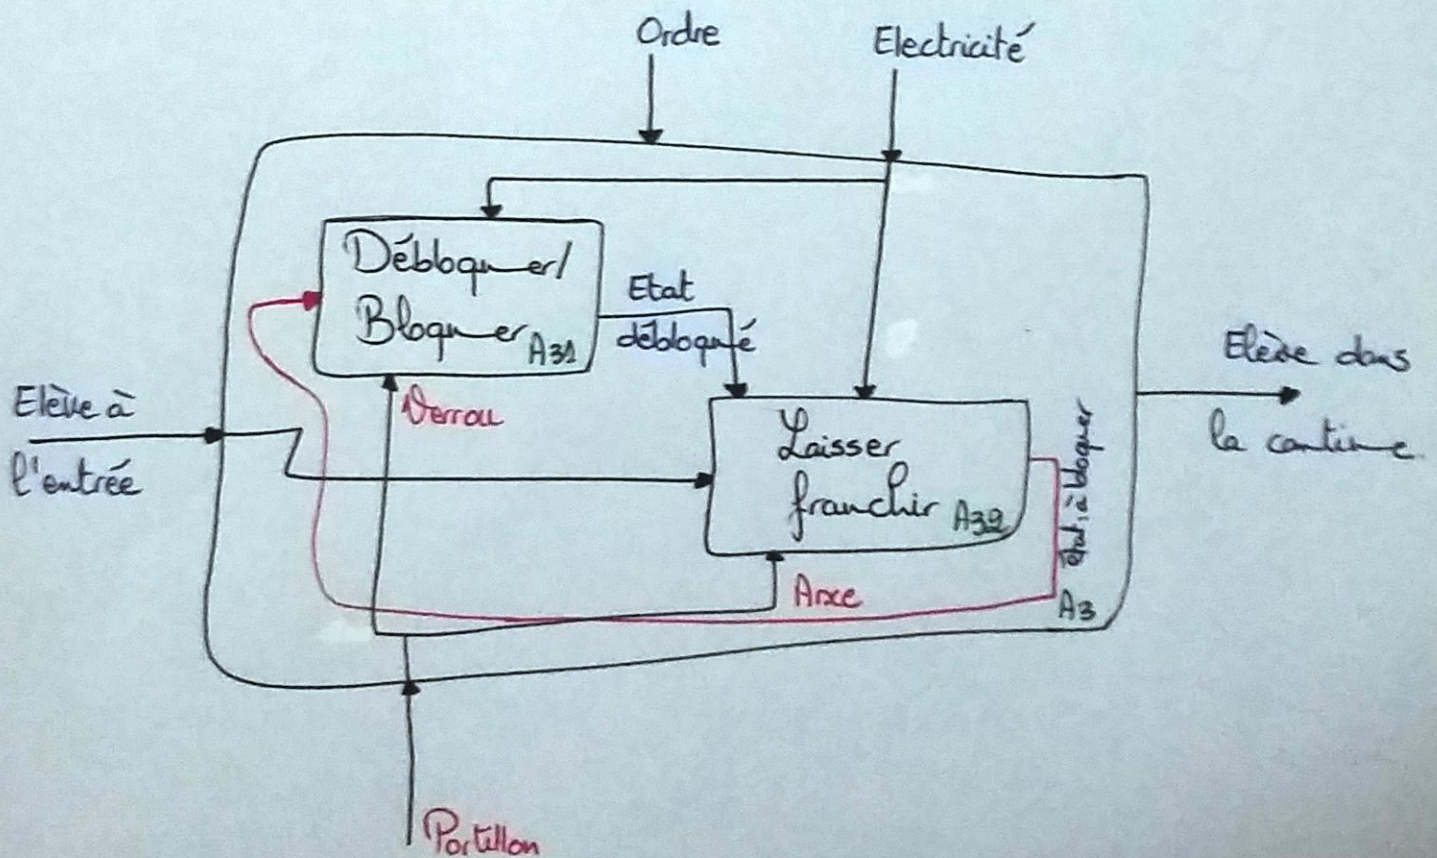 Ordre
Electricité
Débloquer/
Bloquer
A31
Etat
débloqué
Verrou
Elève à
l'entrée
Laisser
franchir
A32
état à bloquer
Elève dans
la cantine
Axe
A3
Portillon